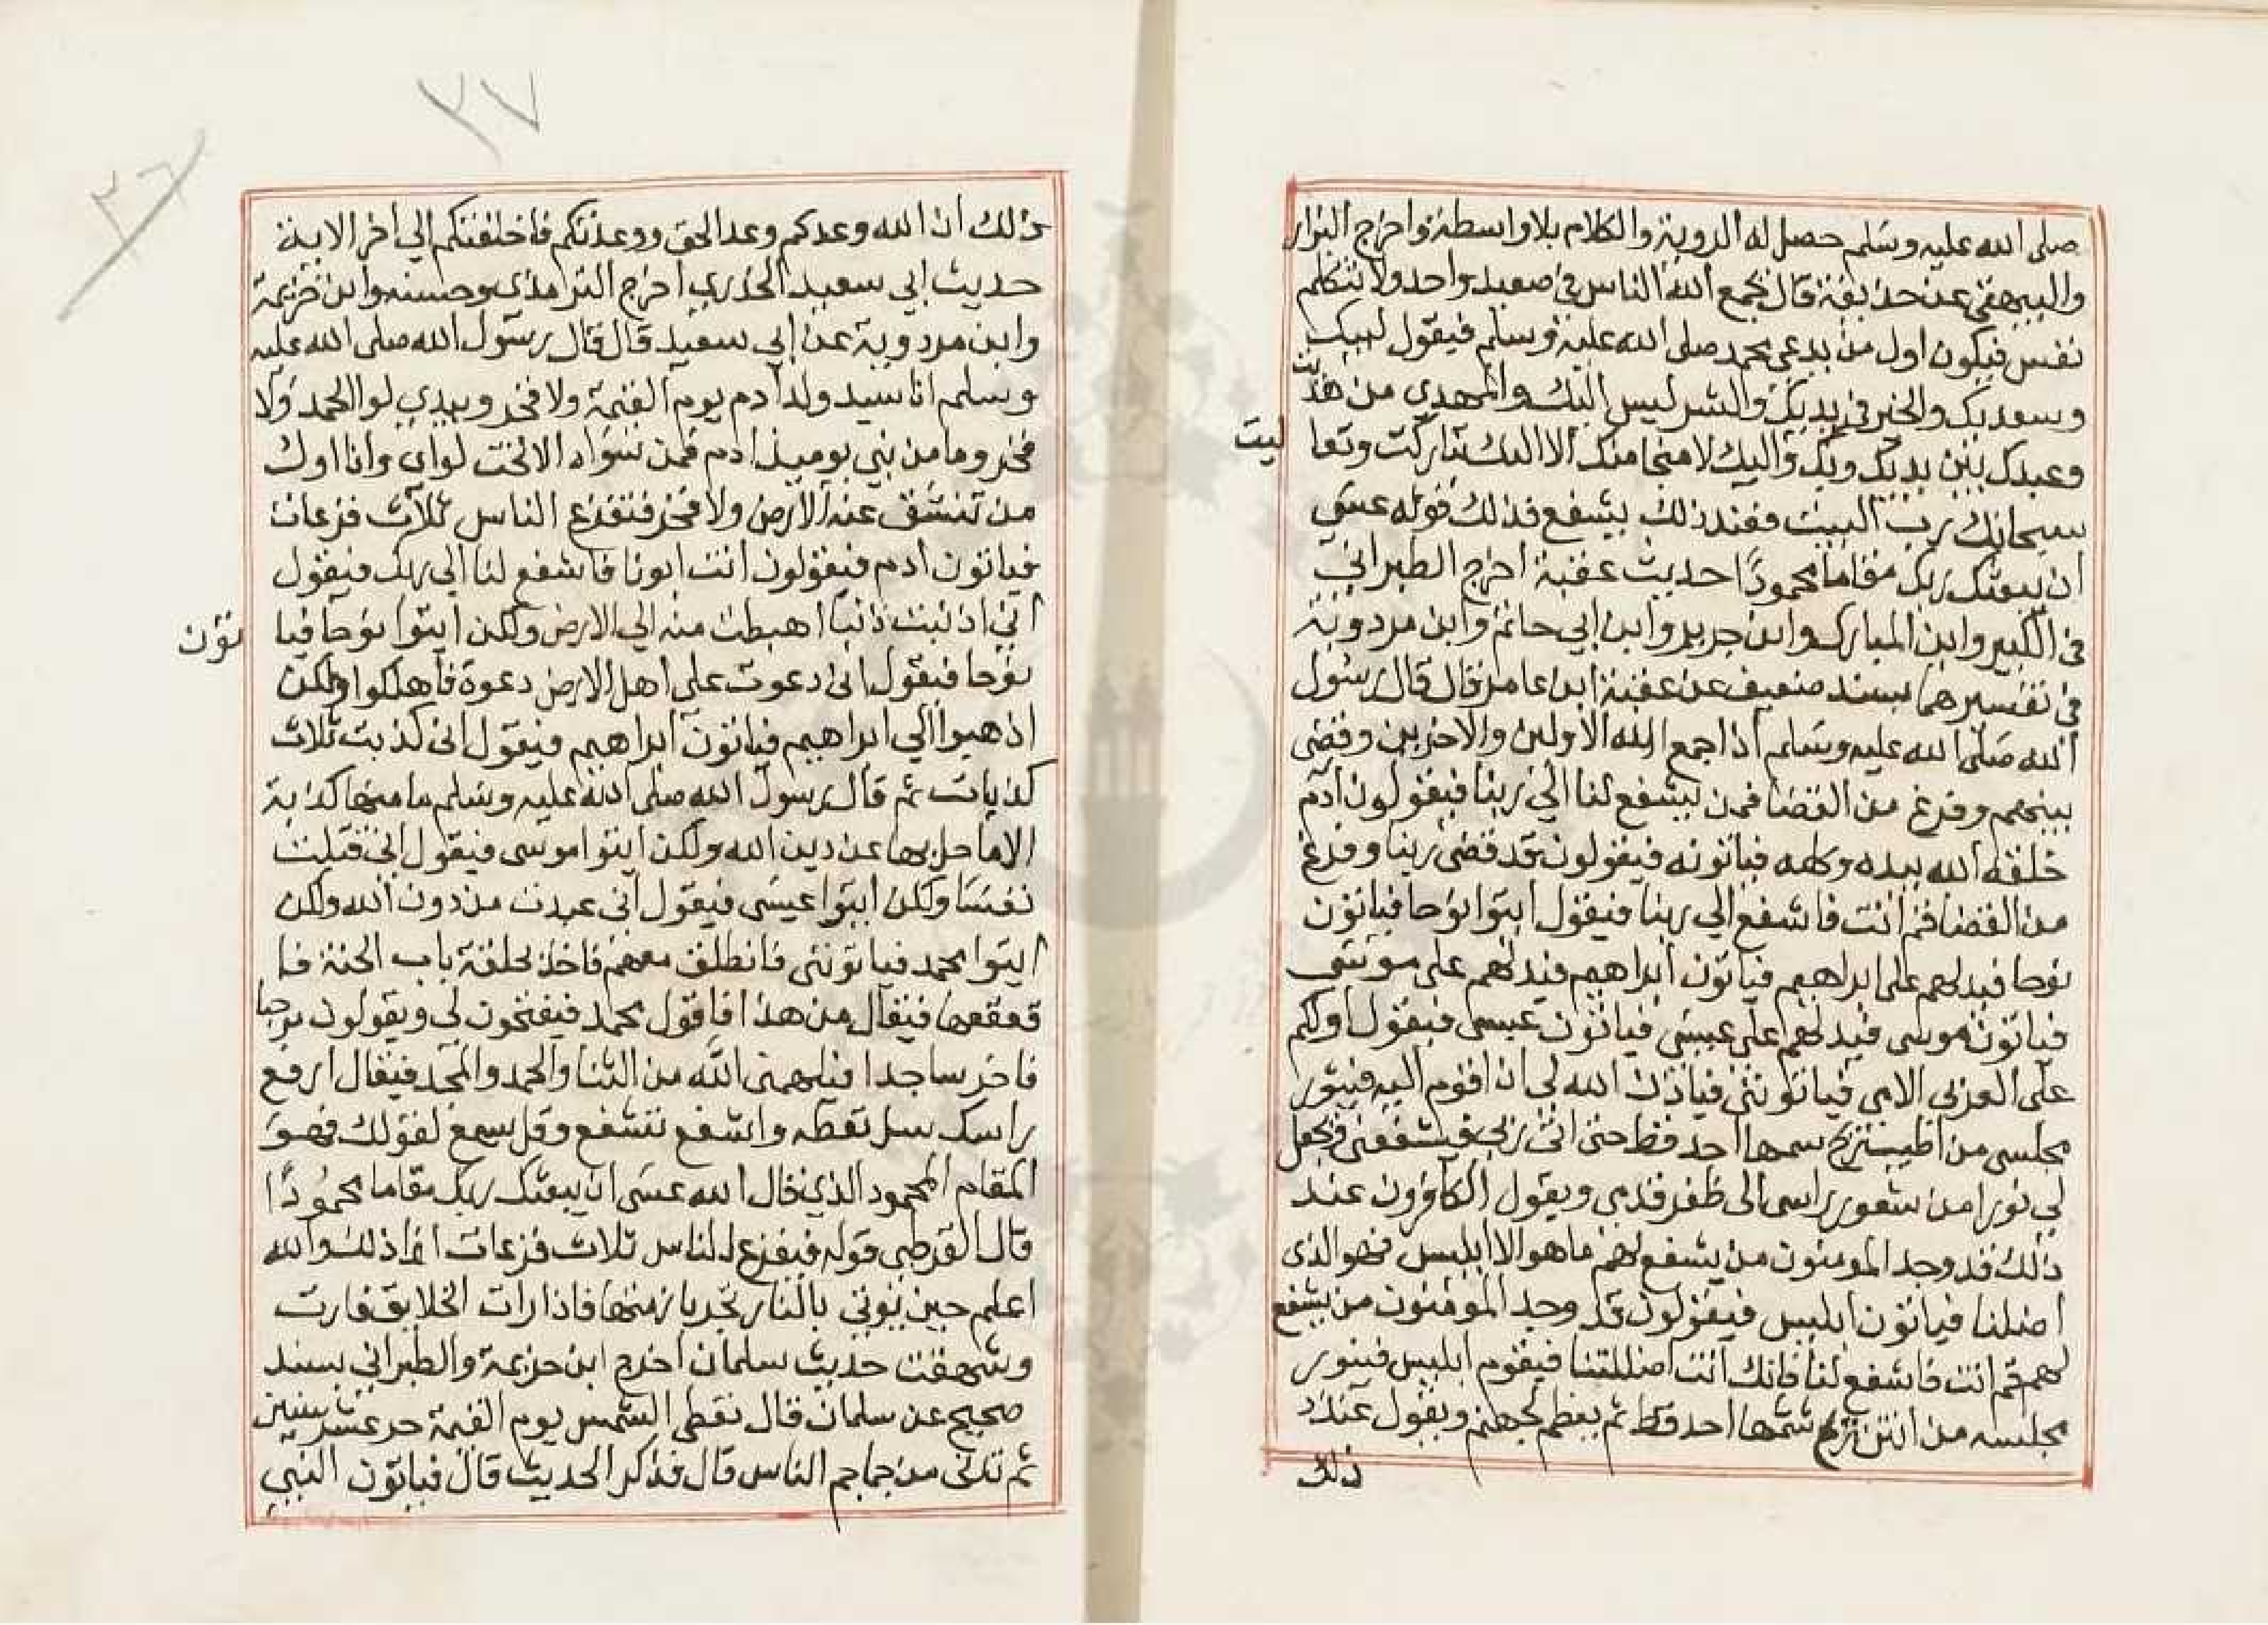 صلى الله عليه وسلم حصل له الروية والكلام بلا واسطة واخرج البزار
والبيهقي عن حذيفة قال يجمع الله الناس في صعيد واحد ولا تتكلم
نفس فيكون اول من يدعى محمد صلى الله عليه وسلم فيقول لبيك
وسعديك والخير في يديك والشر ليس اليك والمهدي من هديت
وعبدك بين يديك وبك واليك لا منجا منك الا اليك تباركت وتعاليت
سبحانك رب البيت فعند ذلك يشفع فذلك قوله عسى
ان يبعثك ربك مقاما محمودًا حديث عقبة اخرج الطبراني
في الكبير وابن المبارك وابن جرير وابن ابي حاتم وابن مردوية
في تفسيرهما بسند ضعيف عن عقبة ابن عامر قال قال رسول
الله صلى الله عليه وسلم اذا جمع الله الاولين والاخرين وقضى
بينهم وفرغ من القضا فمن يشفع لنا الي ربنا فيقولون ادم
خلقه الله بيده وكلمه فياتونه فيقولون قد قضى ربنا وفرغ
من القضا قم انت فاشفع الي ربنا فيقول ايتوا نوحا فياتون
نوحا فيدلهم على ابراهيم فياتون ابراهيم فيدلهم على موسى
فياتون موسى فيدلهم على عيسى فياتون عيسى فيقول ادلكم
على العربي الامي فياتونني فياذن الله لي ان اقوم اليه فيثور
مجلسي من اطيب ريح شمها احد قط حتى اتى ربي فيشفعني فيجعل
لي نورا من شعور راسي الى ظفر قدمي ويقول الكافرون عند
ذلك قد وجد المومنون من يشفع لهم ما هو الا ابليس فهو الذى
اضلنا فياتون ابليس فيقولون قد وجد المومنون من يشفع
لهم قم انت فاشفع لنا فانك انت اضللتنا فيقوم ابليس فيثور
مجلسه من انتن ريح شمها احد قط ثم يعظم لجهنم ويقول عند
ذلك
٢٧
٣٦
ذلك ان الله وعدكم وعد الحق ووعدتكم فاخلفتكم الي اخر الاية
حديث ابي سعيد الخدري اخرج الترمذي وحسنه وابن خزيمة
وابن مردوية عن ابي سعيد قال قال رسول الله صلى الله عليه
وسلم انا سيد ولد ادم يوم القيمة ولا فخر وبيدي لوا الحمد ولا
فخر وما من نبي يوميذ ادم فمن سواه الا تحت لواى وانا اول
من تنشق عنه الارض ولا فخر فتفزع الناس ثلاث فزعات
فياتون ادم فيقولون انت ابونا فاشفع لنا الي ربك فيقول
اني اذنبت ذنبا اهبطت منه الي الارض ولكن ايتوا نوحا فياتون
نوحا فيقول انى دعوت على اهل الارض دعوة فاهلكوا ولكن
اذهبوا الي ابراهيم فياتون ابراهيم فيقول انى كذبت ثلاث
كذبات ثم قال رسول الله صلى الله عليه وسلم ما منها كذبة
الا ما حل بها عن دين الله ولكن ايتوا موسى فيقول انى قتلت
نفسا ولكن ايتوا عيسى فيقول انى عبدت من دون الله ولكن
ايتوا محمد فياتونني فانطلق معهم فاخذ بحلقة باب الجنة فا
قعقعها فيقال من هذا فاقول محمد فيفتحون لي ويقولون مرحبا
فاخر ساجدا فيلهمني الله من الثنا والحمد والمجد فيقال ارفع
راسك سل تعطه واشفع تشفع وقل يسمع لقولك فهو
المقام المحمود الذي قال الله عسى ان يبعثك ربك مقاما محمودًا
قال القرطبي قوله فيفزع الناس ثلاث فزعات انما ذلك والله
اعلم حين يوتي بالنار تجر بازمتها فاذا رات الخلايق فارت
وشهقت حديث سلمان اخرج ابن خزيمة والطبراني بسند
صحيح عن سلمان قال تعطى الشمس يوم القيمة حر عشر سنين
ثم تدنى من جماجم الناس قال فذكر الحديث قال فياتون النبي